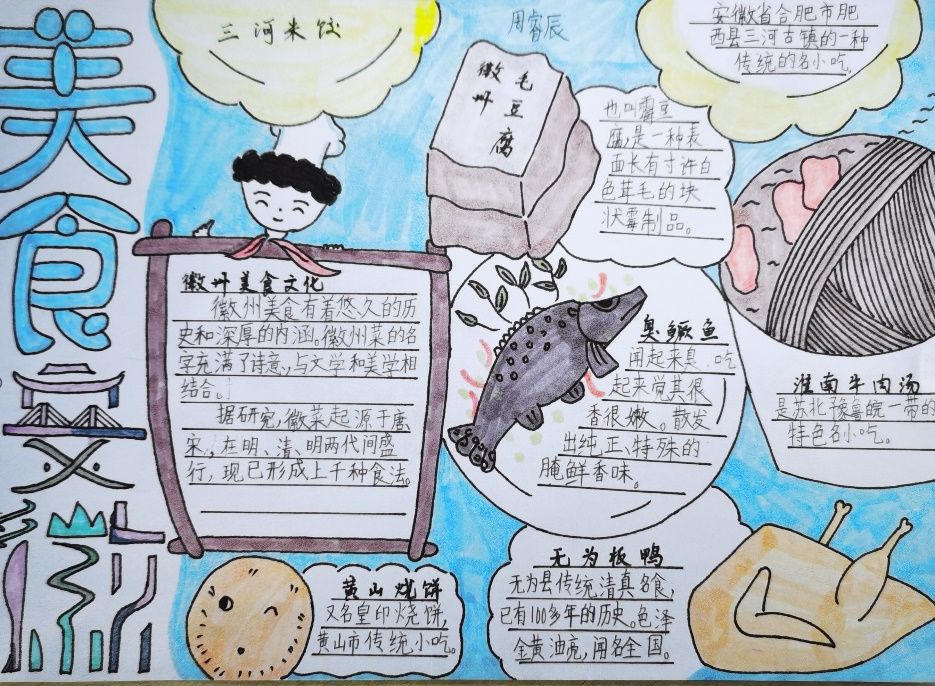 美食安徽
三河米饺
周睿辰
安徽省合肥市肥
西县三河古镇的一种
传统的名小吃,
徽州
毛豆腐
也叫霉豆
腐,是一种表
面长有寸许白
色茸毛的块
状霉制品。
徽州美食文化
徽州美食有着悠久的历
史和深厚的内涵。徽州菜的名
字充满了诗意,与文学和美学相
结合。
据研究,徽菜起源于唐
宋,在明、清、明两代间盛
行,现已形成上千种食法。
臭鳜鱼
闻起来臭.吃
起来觉其很
香很嫩。散发
出纯正、特殊的
腌鲜香味。
淮南牛肉汤
是苏北豫鲁皖一带的
特色名小吃。
黄山烧饼
又名皇印烧饼,
黄山市传统小吃。
无为板鸭
无为县传统清真名食,
已有100多年的历史。色泽
金黄油亮,闻名全国。